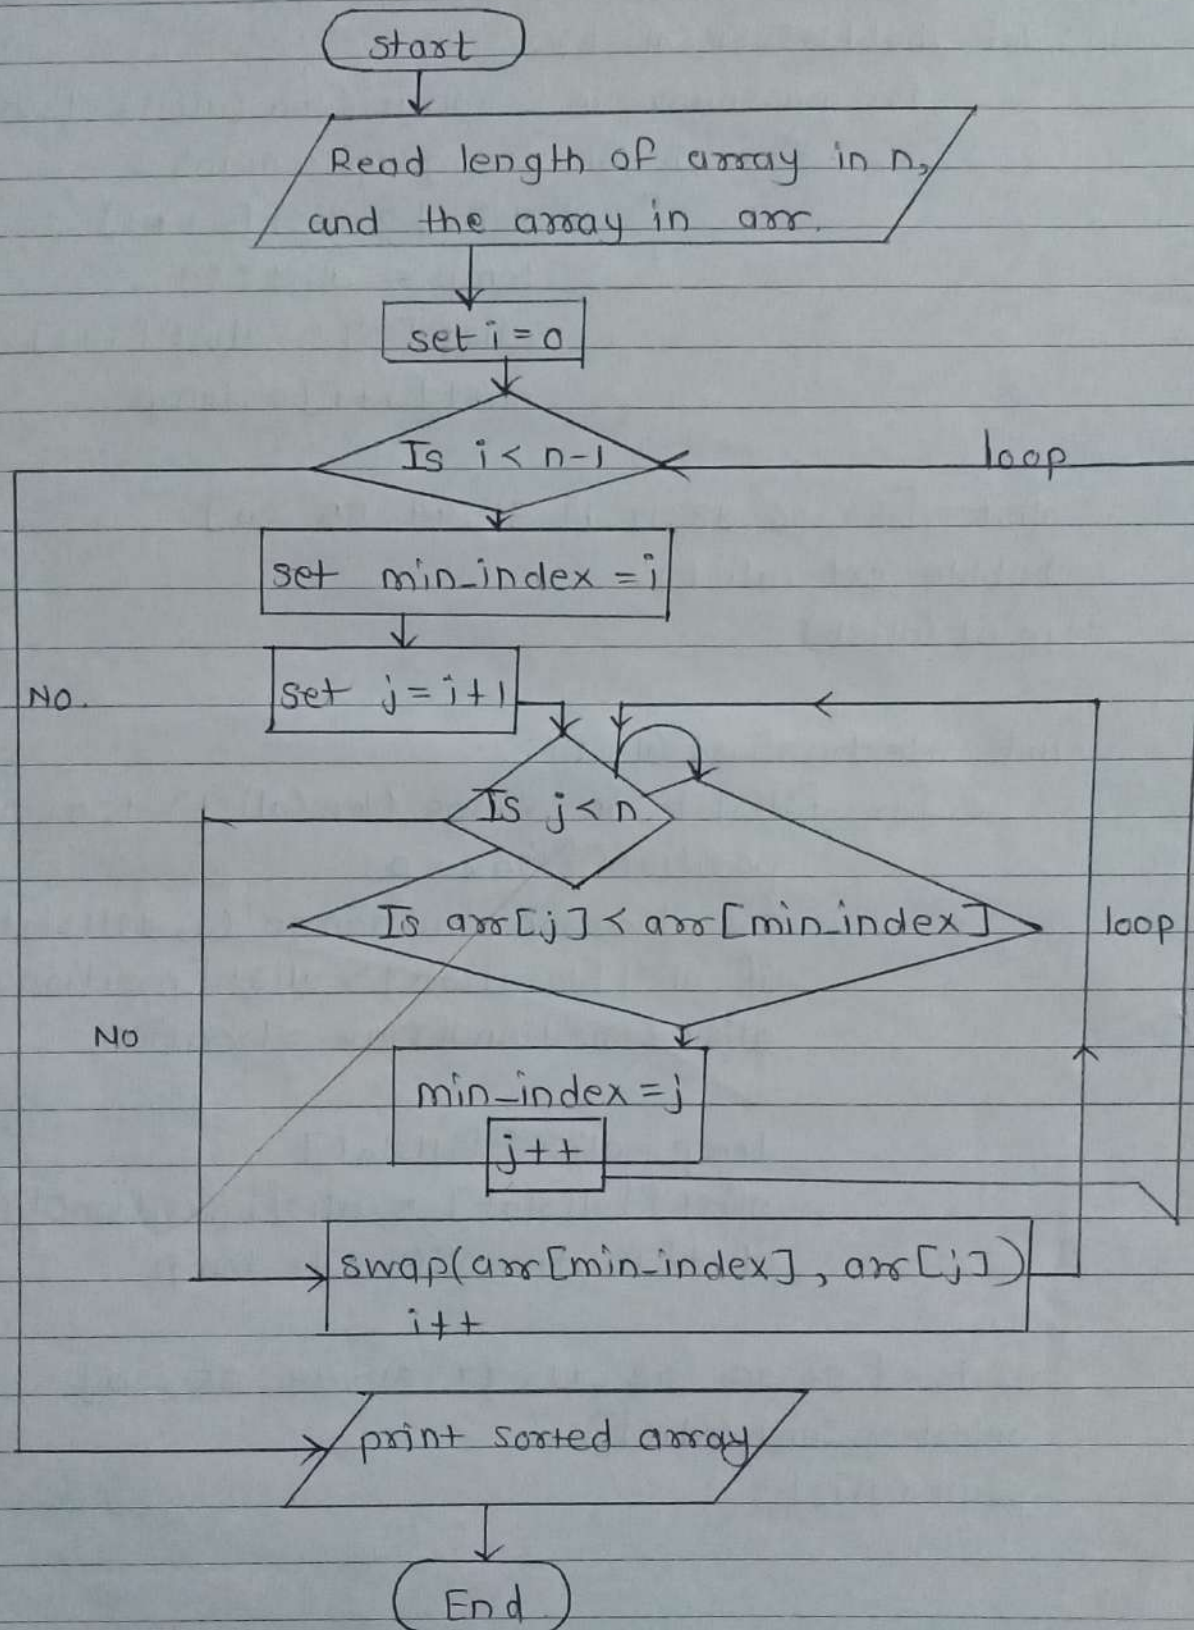 start
Read length of array in n,
and the array in arr.
set i = 0
Is i < n-1
loop
set min_index = i
NO.
set j = i+1
Is j < n
Is arr[j] < arr[min_index]
loop
NO
min_index = j
j++
swap(arr[min_index], arr[j])
i++
print sorted array
End